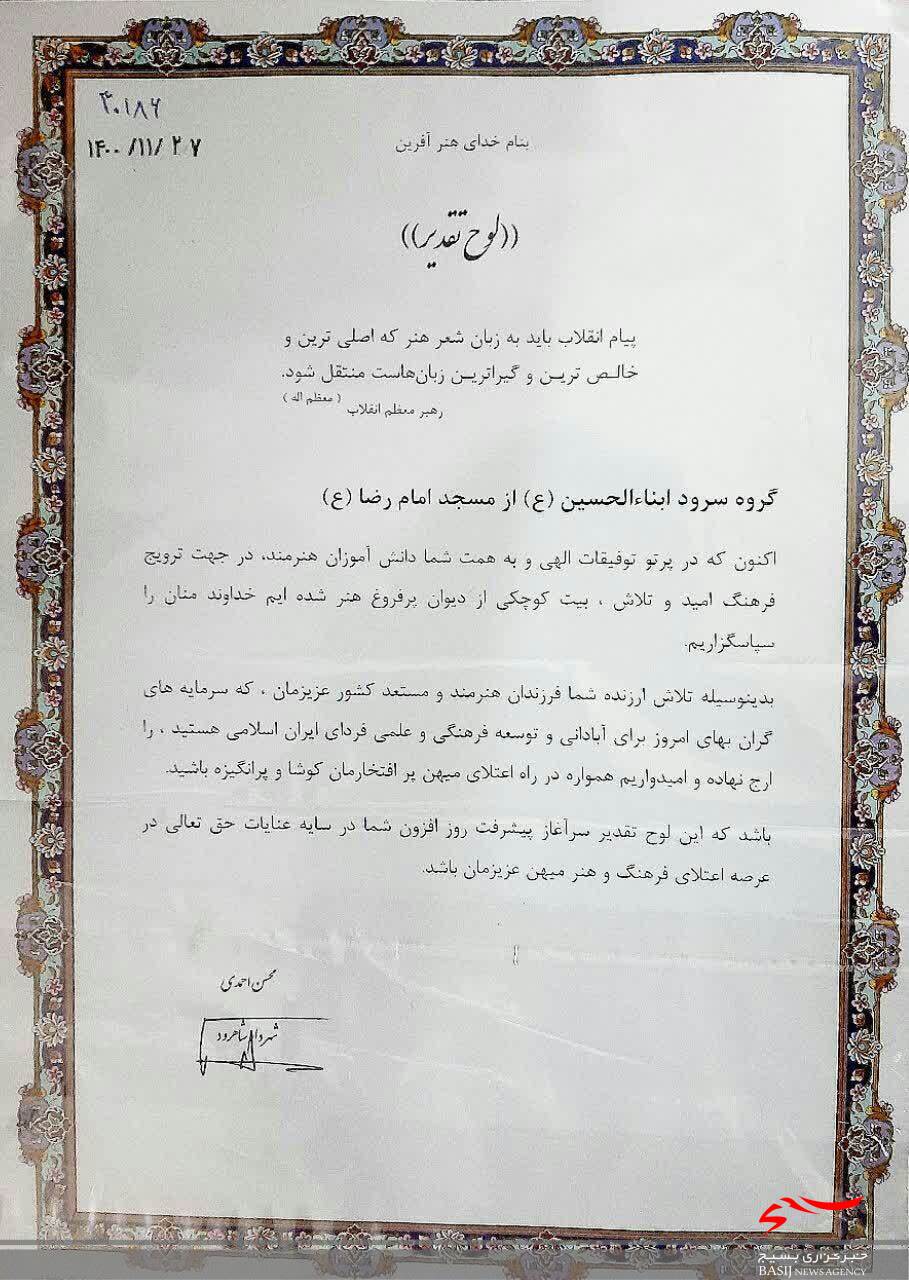 ۴۰۱۸۶
۱۴۰۰/۱۱/۲۷
بنام خدای هنر آفرین
((لوح تقدیر))
پیام انقلاب باید به زبان شعر هنر که اصلی ترین و
خالص ترین و گیراترین زبان‌هاست منتقل شود.
رهبر معظم انقلاب ( معظم اله )
گروه سرود ابناءالحسین (ع) از مسجد امام رضا (ع)
اکنون که در پرتو توفیقات الهی و به همت شما دانش آموزان هنرمند، در جهت ترویج
فرهنگ امید و تلاش ، بیت کوچکی از دیوان پرفروغ هنر شده ایم خداوند منان را
سپاسگزاریم.
بدینوسیله تلاش ارزنده شما فرزندان هنرمند و مستعد کشور عزیزمان ، که سرمایه های
گران بهای امروز برای آبادانی و توسعه فرهنگی و علمی فردای ایران اسلامی هستید ، را
ارج نهاده و امیدواریم همواره در راه اعتلای میهن پر افتخارمان کوشا و پرانگیزه باشید.
باشد که این لوح تقدیر سرآغاز پیشرفت روز افزون شما در سایه عنایات حق تعالی در
عرصه اعتلای فرهنگ و هنر میهن عزیزمان باشد.
محسن احمدی
شهردار شاهرود
خبرگزاری بسیج
BASIJ NEWS AGENCY